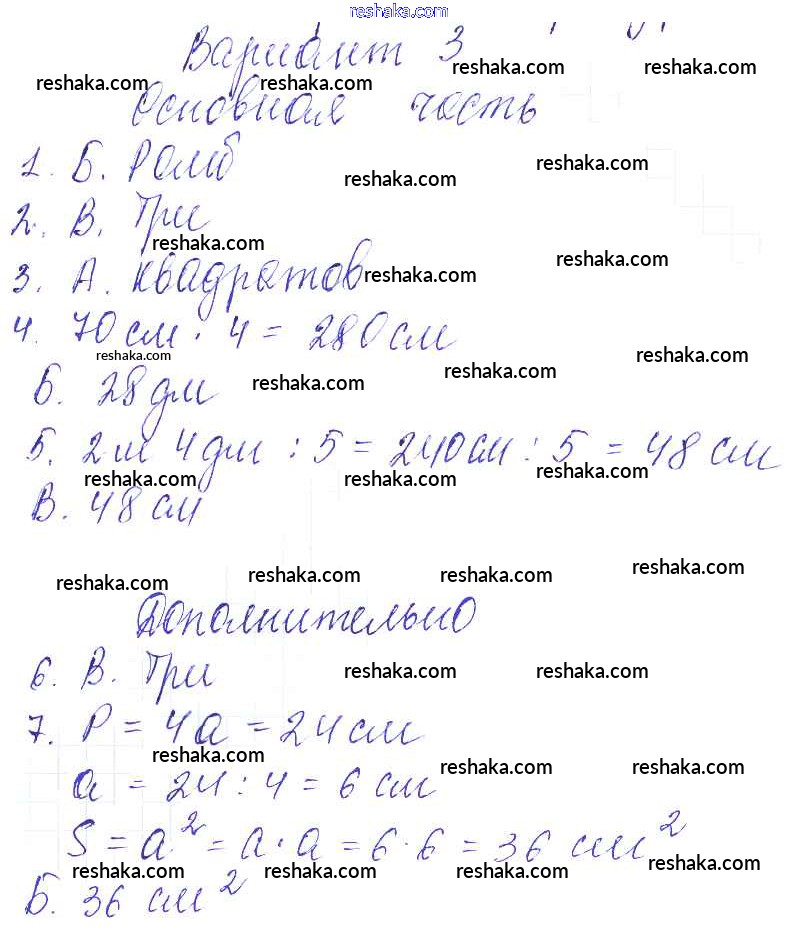 reshaka.com
Вариант 3
reshaka.com reshaka.com reshaka.com reshaka.com
Основная часть
1. Б. Ромб
reshaka.com reshaka.com
2. В. Три
reshaka.com reshaka.com reshaka.com
3. А. квадратов
4. 70 см · 4 = 280 см
reshaka.com reshaka.com reshaka.com reshaka.com
Б. 28 дм
5. 2 м 4 дм : 5 = 240 см : 5 = 48 см
reshaka.com reshaka.com reshaka.com
В. 48 см
reshaka.com reshaka.com reshaka.com reshaka.com
Дополнительно
6. В. Три
reshaka.com reshaka.com
7. P = 4a = 24 см
reshaka.com reshaka.com reshaka.com
a = 24 : 4 = 6 см
S = a² = a · a = 6 · 6 = 36 см²
reshaka.com reshaka.com reshaka.com reshaka.com
Б. 36 см²